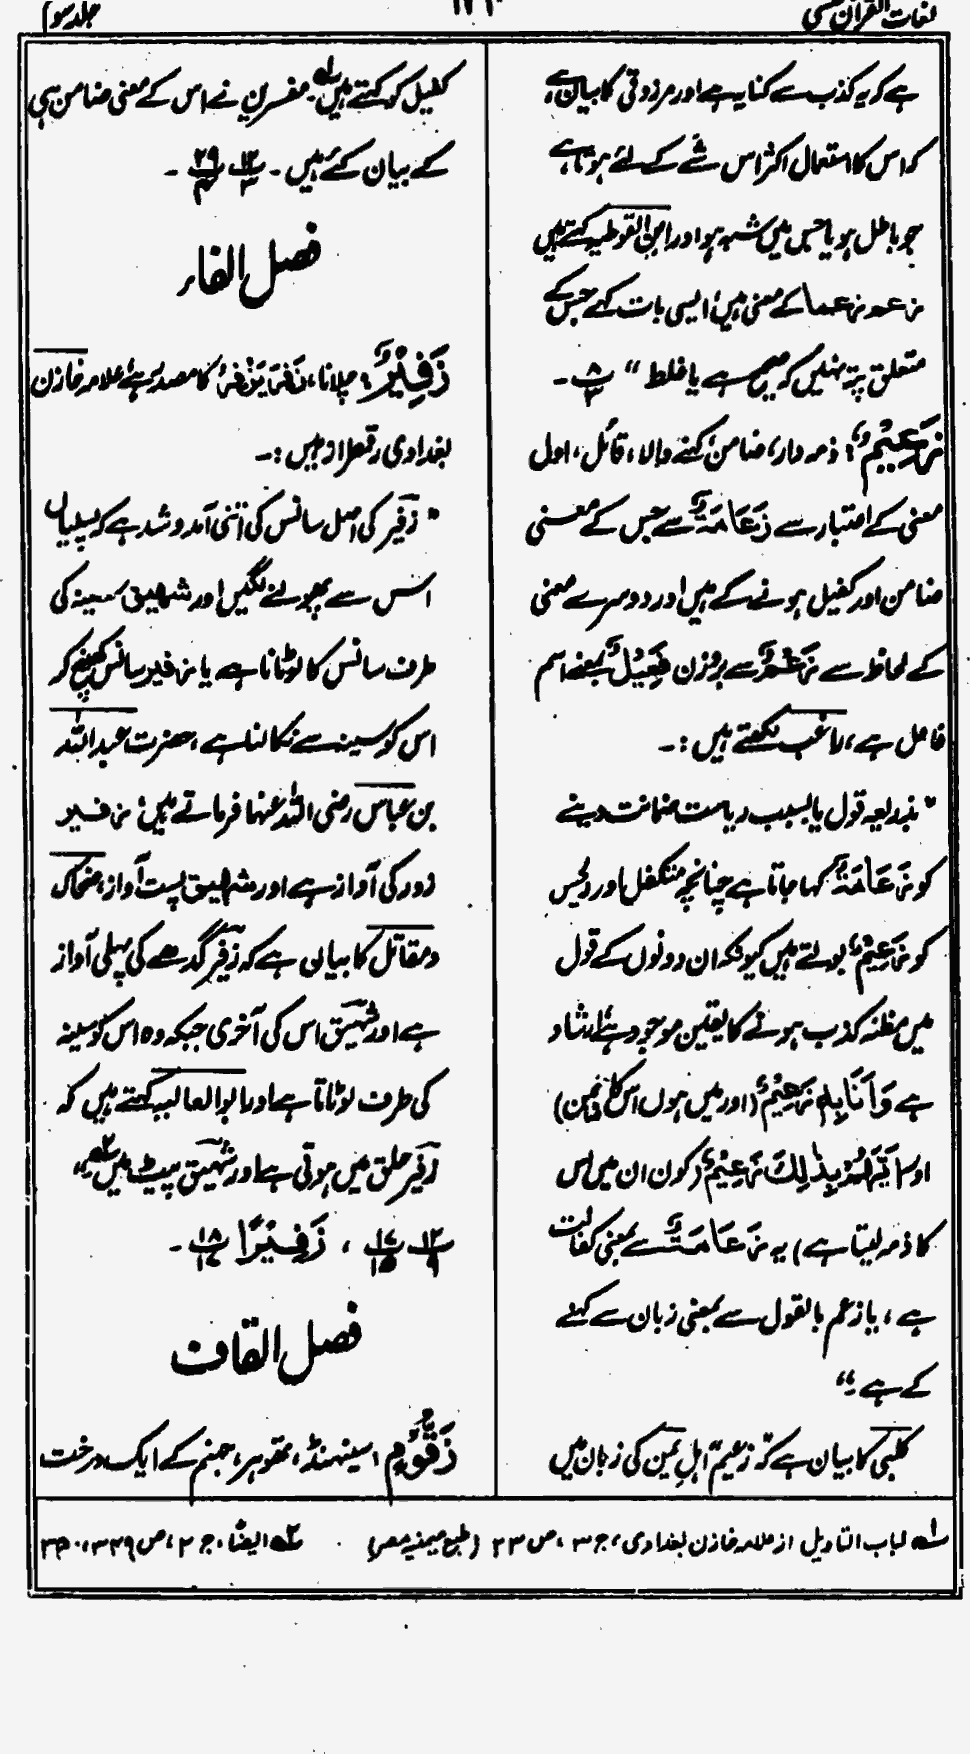 لغات القرآن
جلد سوم
ہے کہ یہ کذب سے کنایہ ہے اور مرزوقی کا بیان ہے
کہ اس کا استعمال اکثر اس شے کے لئے ہوتا ہے
جو باطل ہو یا جس میں شبہ ہو اور ابن القوطیہ کہتے ہیں
زعم زعما کے معنی ہیں، ایسی بات کہے جس کے
متعلق پتہ نہیں کہ صحیح ہے یا غلط " پ ۸/۲ ۔
زَعِیْمٌ، ذمہ دار، ضامن، کہنے والا، قائل، اول
معنی کے اعتبار سے زَعَامَۃٌ سے جس کے معنی
ضامن اور کفیل ہونے کے ہیں اور دوسرے معنی
کے لحاظ سے زَعْمٌ سے بروزن فَعِیْلٌ بمعنی اسم
فاعل ہے، راغب لکھتے ہیں :۔
" بذریعہ قول یا بسبب ریاست ضمانت دینے
کو زَعَامَۃٌ کہا جاتا ہے چنانچہ متکفل اور رئیس
کو زَعِیْمٌ بولتے ہیں کیونکہ ان دونوں کے قول
میں مظنہ کذب ہونے کا یقین موجود ہے، ارشاد
ہے وَاَنَا بِہٖ زَعِیْمٌ (اور میں ہوں اس کا ضمین)
اور اَیُّہُمْ بِذٰلِکَ زَعِیْمٌ (کون ان میں اس
کا ذمہ لیتا ہے) یہ زَعَامَۃٌ سے بمعنی کفالت
ہے، یا زعم بالقول سے بمعنی زبان سے کہنے
کے ہے ۔"
کلبی کا بیان ہے کہ زعیم اہل یمن کی زبان میں
کفیل کو کہتے ہیں ۱؎ مفسرین نے اس کے معنی ضامن ہی
کے بیان کئے ہیں ۔ پ ۱۳/۳ پ ۲۹/۴ ۔
فصل الفاء
زَفِیْرٌ، چلانا، زَفَرَ یَزْفِرُ کا مصدر ہے، علامہ خازن
بغدادی رقمطراز ہیں :۔
" زفیر کی اصل سانس کی اتنی آمد و شد ہے کہ پسلیاں
اس سے پھولنے لگیں اور شہیق سینہ کی
طرف سانس کا لوٹانا ہے یا زفیر سانس کھینچ کر
اس کو سینہ سے نکالنا ہے، حضرت عبداللہ
بن عباس رضی اللہ عنہما فرماتے ہیں، زفیر
زور کی آواز ہے اور شہیق پست آواز، ضحاک
و مقاتل کا بیان ہے کہ زفیر گدھے کی پہلی آواز
ہے اور شہیق اس کی آخری جبکہ وہ اس کو سینہ
کی طرف لوٹاتا ہے اور ابوالعالیہ کہتے ہیں کہ
زفیر حلق میں ہوتی ہے اور شہیق پیٹ میں ۲؎
پ ۱۲/۹ پ ۱۷/۱۵ ، زَفِیْرًا پ ۱۸/۱۷ ۔
فصل القاف
زَقُّوْمٍ، سینہنڈ، تھوہر، جہنم کے ایک درخت
۱؎ لباب التاویل از علامہ خازن بغدادی، ج ۳، ص ۲۳ (طبع میمنیہ مصر)
۲؎ ایضًا، ج ۲، ص ۳۳۹، ۳۴۰